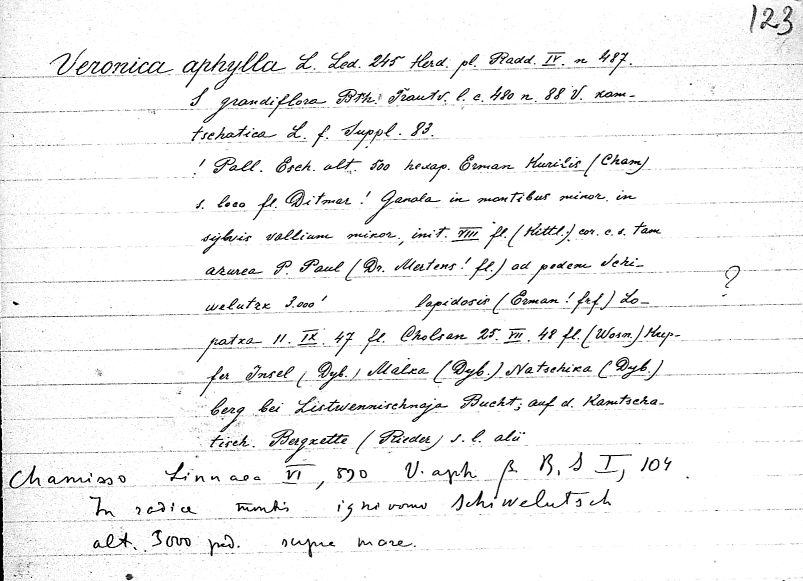 123
Veronica aphylla L. Led. 245 Herd. pl. Radd. IV. n 487.
S grandiflora Bth. Trautv. l. c. 480 n. 88 V. kam-
tschatica L. f. Suppl. 83.
! Pall. Esch. alt. 500 hexap. Erman Kurilis (Cham)
s. loco fl. Ditmar! Ganala in montibus minor. in
sylvis vallium minor, init. VIII fl. (Kittl.) cor. c. s. tam
azurea P. Paul (Dr. Mertens! fl.) ad pedem Schi-
welutzk 3.000' lapidosis (Erman! frf) Lo-
patka 11. IX. 47 fl. Cholsan 25. VII. 48 fl. (Wosn.) Kup-
fer Insel, Dyb., Malka (Dyb.) Natschika (Dyb.)
?
berg bei Listwennischnaja Bucht; auf d. Kamtscha-
tisch. Bergkette (Rieder) s. l. alii
Chamisso Linnaea VI, 590 V. aph β B, S I, 104.
In radice montis ignivomo Schiwelutsch
alt. 3000 ped. supra mare.